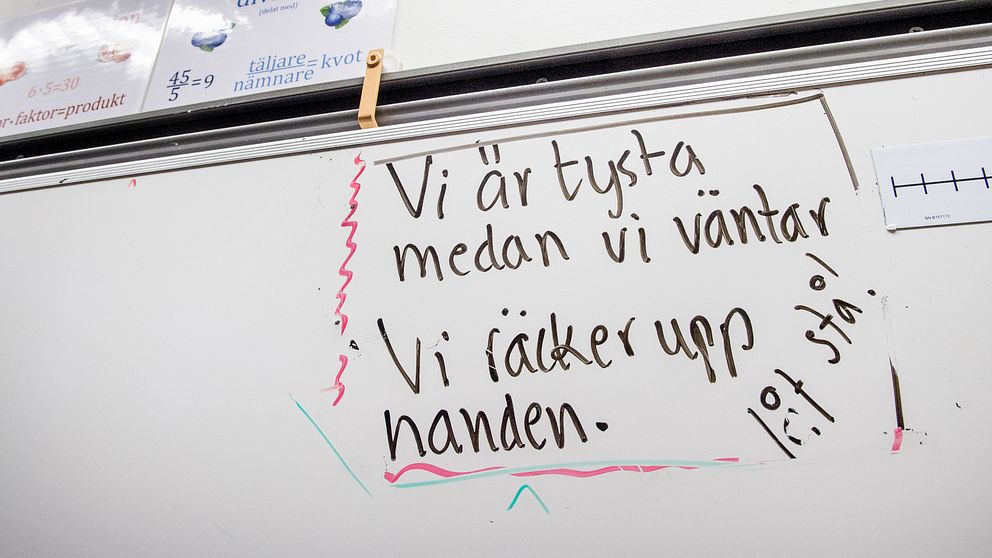 (delat med)
6·5=30
faktor=produkt
45/5=9
täljare/nämnare=kvot
Vi är tysta
medan vi väntar
Vi räcker upp
handen.
låt stå!